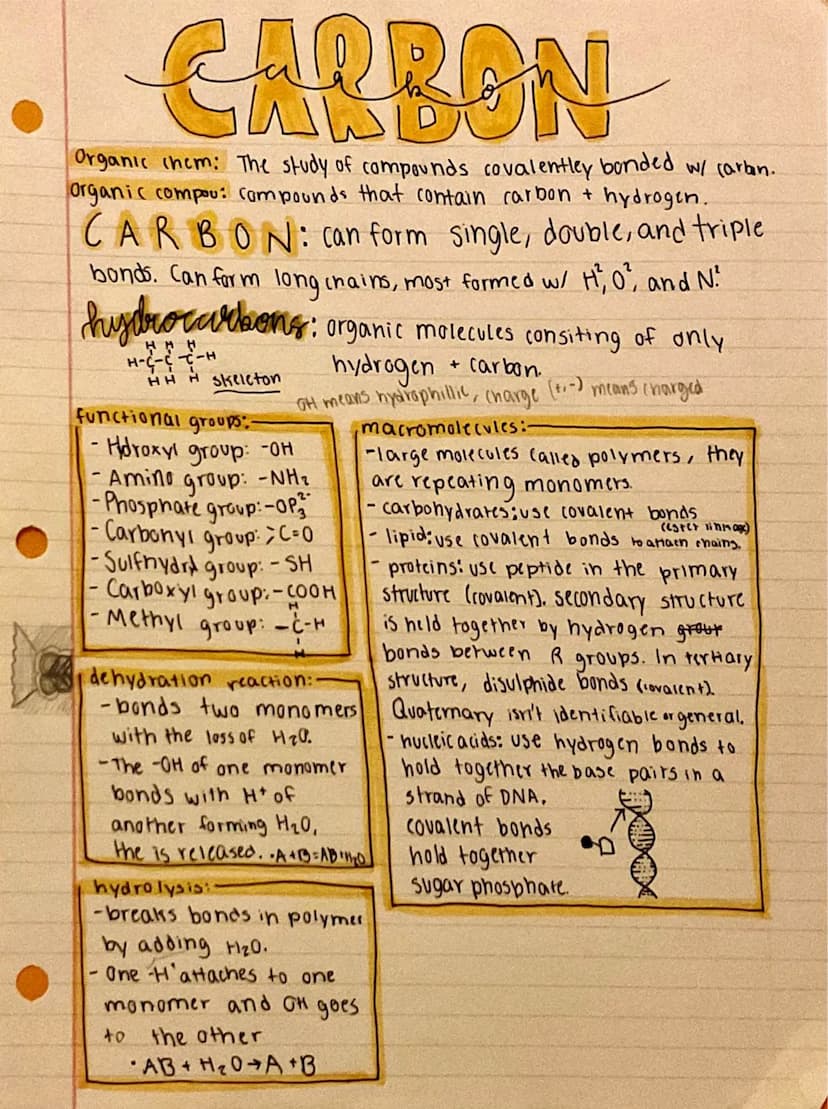 CARBON
carbon
Organic chem: The study of compounds covalentley bonded w/ carbon.
Organic compou: compounds that contain carbon + hydrogen.
CARBON: can form single, double, and triple
bonds. Can form long chains, most formed w/ H², O², and N².
hydrocarbons: organic molecules consiting of only
hydrogen + carbon.
H H H
H-C-C-C-H
H H H
skeleton
OH means hydrophillic, charge (+,-) means charged
functional groups:
- Hdroxyl group: -OH
- Amino group: -NH₂
- Phosphate group: -OP₃²⁻
- Carbonyl group: >C=O
- Sulfhydrl group: -SH
- Carboxyl group: -COOH
- Methyl group: -C-H
H
H
dehydration reaction:
- bonds two monomers
with the loss of H₂O.
- The -OH of one monomer
bonds with H⁺ of
another forming H₂O,
the is released. •A+B=AB+H₂O
hydrolysis:
- breaks bonds in polymer
by adding H₂O.
- One -H' attaches to one
monomer and OH goes
to the other
•AB + H₂O→A+B
macromolecules:
- large molecules called polymers, they
are repeating monomers.
- carbohydrates: use covalent bonds
- lipid: use covalent bonds (ester linkage) to attach chains.
- proteins: use peptide in the primary
structure (covalent). secondary structure
is held together by hydrogen group
bonds between R groups. In tertiary
structure, disulphide bonds (covalent).
Quaternary isn't identifiable or general.
- nucleic acids: use hydrogen bonds to
hold together the base pairs in a
strand of DNA.
covalent bonds
hold together
sugar phosphate.